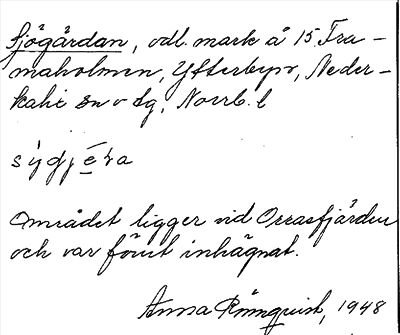 Sjögårdan, odl. mark å 15 Fra-
maholmen, Ytterbyn, Neder-
kalix sn o tg, Norrb. l
Området ligger vid Orrasfjärden
och var förut inhägnat.
Anna Rönnquist, 1948